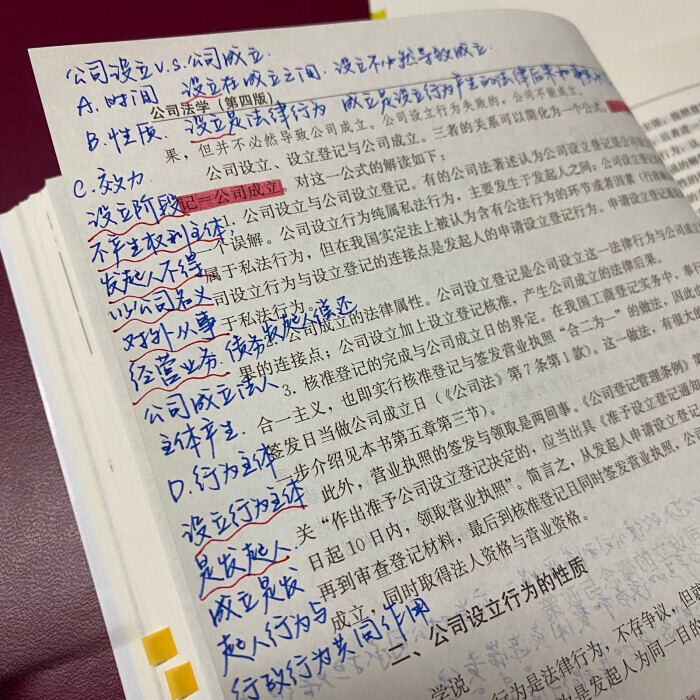 公司设立 v.s. 公司成立.
A. 时间 设立在成立之间. 设立不必然导致成立.
公司法学（第四版）
B. 性质. 设立是法律行为 成立是设立行为产生的法律后果
果，但并不必然导致公司成立。公司设立行为失败的，公司不能成立。
公司设立、设立登记与公司成立。三者的关系可以简化为一个公式。
C. 效力
记＝公司成立。对这一公式的解读如下：
设立阶段
1. 公司设立与公司设立登记。有的公司法著述认为公司设立登记是公司设立
不产生权利主体，
误解。公司设立行为纯属私法行为，主要发生于发起人之间；公司设立登记
发起人不得
属于私法行为，但在我国实定法上被认为含有公法行为的环节或者因素（行政
以公司名义
司设立行为与设立登记的连接点是发起人的申请设立登记行为。申请设立登记
对外从事
于私法行为。
经营业务. 债务发起人偿还
公司成立的法律属性。公司设立登记是公司设立这一法律行为与公司成
果的连接点；公司设立加上设立登记核准，产生公司成立的法律后果。
公司成立法人
3. 核准登记的完成与公司成立日的界定。在我国工商登记实务中，奉行
主体产生.
合一主义，也即实行核准登记与签发营业执照“合二为一”的做法，因此
签发日当做公司成立日（《公司法》第7条第1款）。这一做法，有很大的
D. 行为主体
步介绍见本书第五章第三节）。
设立行为主体
此外，营业执照的签发与领取是两回事。《公司登记管理条例》
是发起人.
关“作出准予公司设立登记决定的，应当出具《准予设立登记通
日起10日内，领取营业执照”。简言之，从发起人申请设立登
成立是发
再到审查登记材料，最后到核准登记且同时签发营业执照，公
起人行为与
成立，同时取得法人资格与营业资格。
行政行为共同作用
二、公司设立行为的性质
学说
行为是法律行为，不存争议，但
是发起人为同一目的